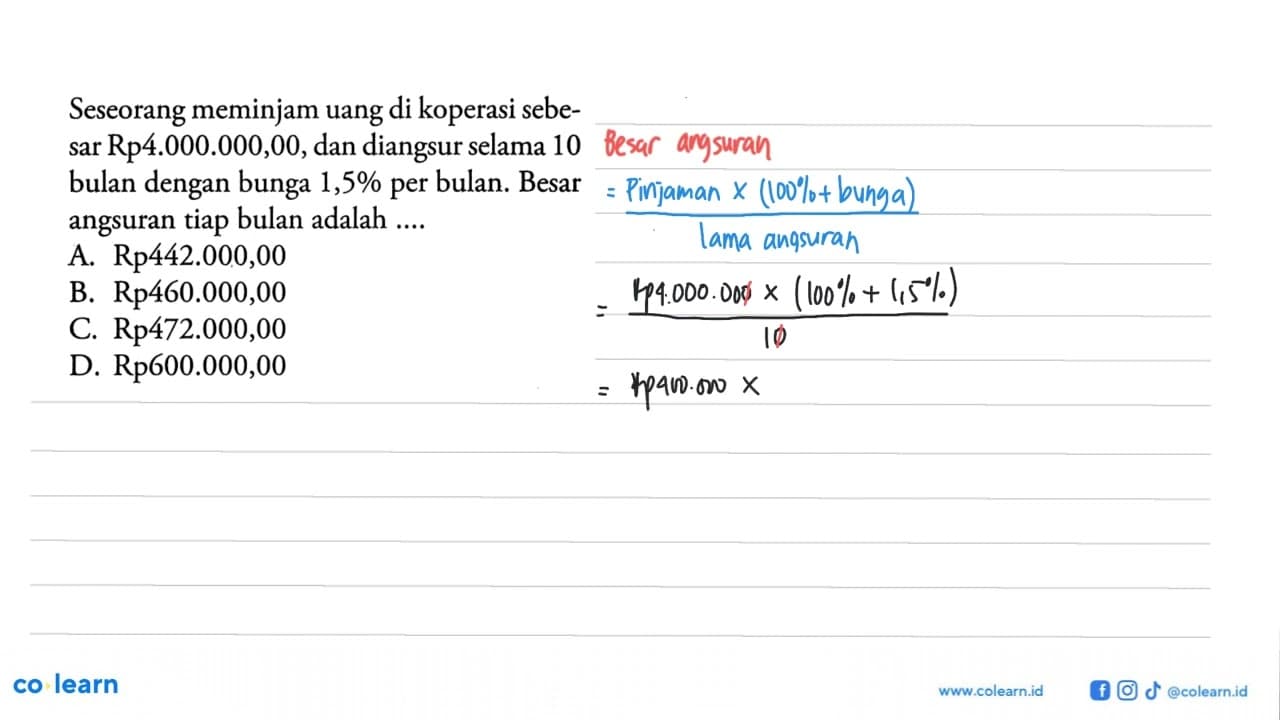 Seseorang meminjam uang di koperasi sebe-
sar Rp4.000.000,00, dan diangsur selama 10
bulan dengan bunga 1,5% per bulan. Besar
angsuran tiap bulan adalah ....
A. Rp442.000,00
B. Rp460.000,00
C. Rp472.000,00
D. Rp600.000,00
Besar angsuran
= Pinjaman x (100% + bunga)
lama angsuran
= Rp4.000.000 x (100% + 1,5%)
10
= Rp400.000 x
co learn
www.colearn.id
@colearn.id